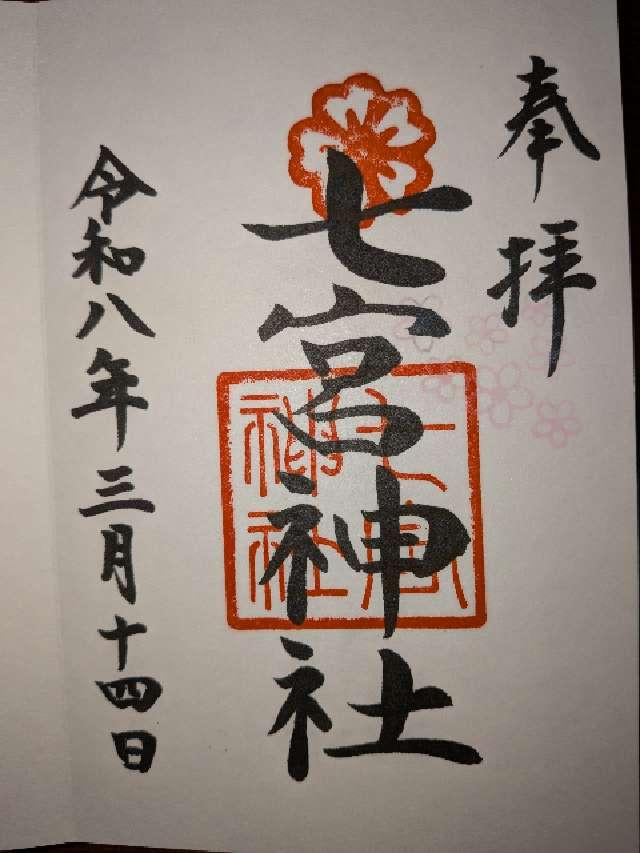 奉拝
七宮神社
七宮神社
令和八年三月十四日